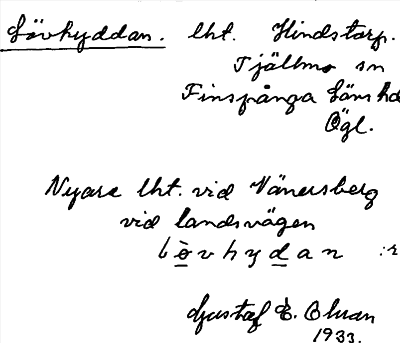 Lövhyddan. lht. Hindstorp.
Tjällmo sn
Finspånga läns hd
Ögl.
Nyare lht. vid Vänersberg
vid landsvägen
lövhydan :r
Gustaf E. Ohson
1933.